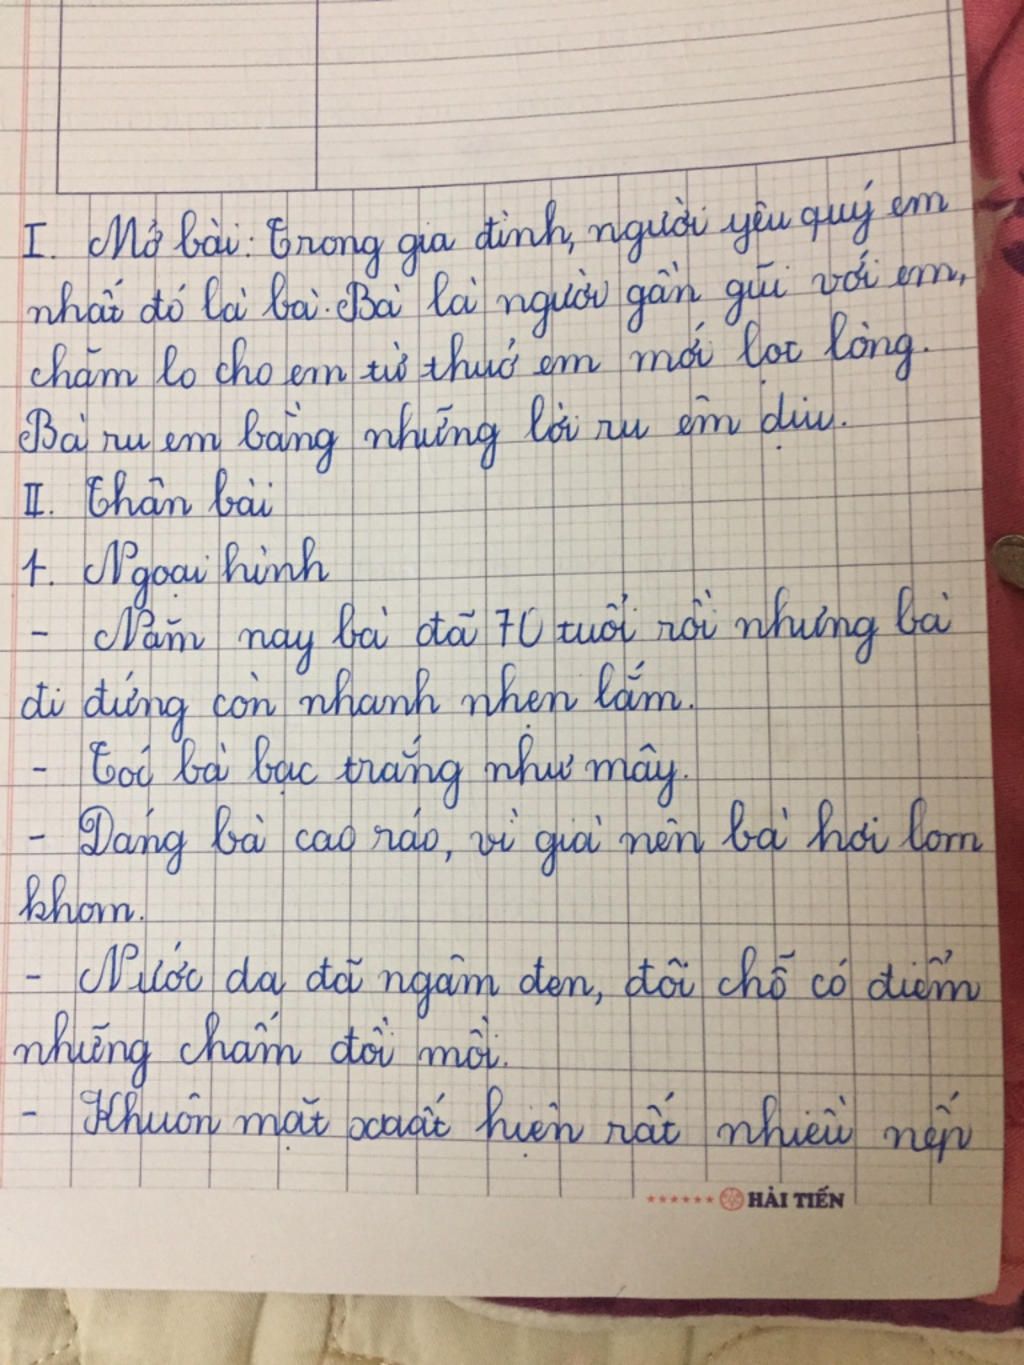 I. Mở bài: Trong gia đình, người yêu quý em
nhất đó là bà. Bà là người gần gũi với em,
chăm lo cho em từ thuở em mới lọt lòng.
Bà ru em bằng những lời ru êm dịu.
II. Thân bài
1. Ngoại hình
- Năm nay bà đã 70 tuổi rồi nhưng bà
đi đứng còn nhanh nhẹn lắm.
- Tóc bà bạc trắng như mây.
- Dáng bà cao ráo, vì già nên bà hơi lom
khom.
- Nước da đã ngăm đen, đôi chỗ có điểm
những chấm đồi mồi.
- Khuôn mặt xuất hiện rất nhiều nếp
HẢI TIẾN